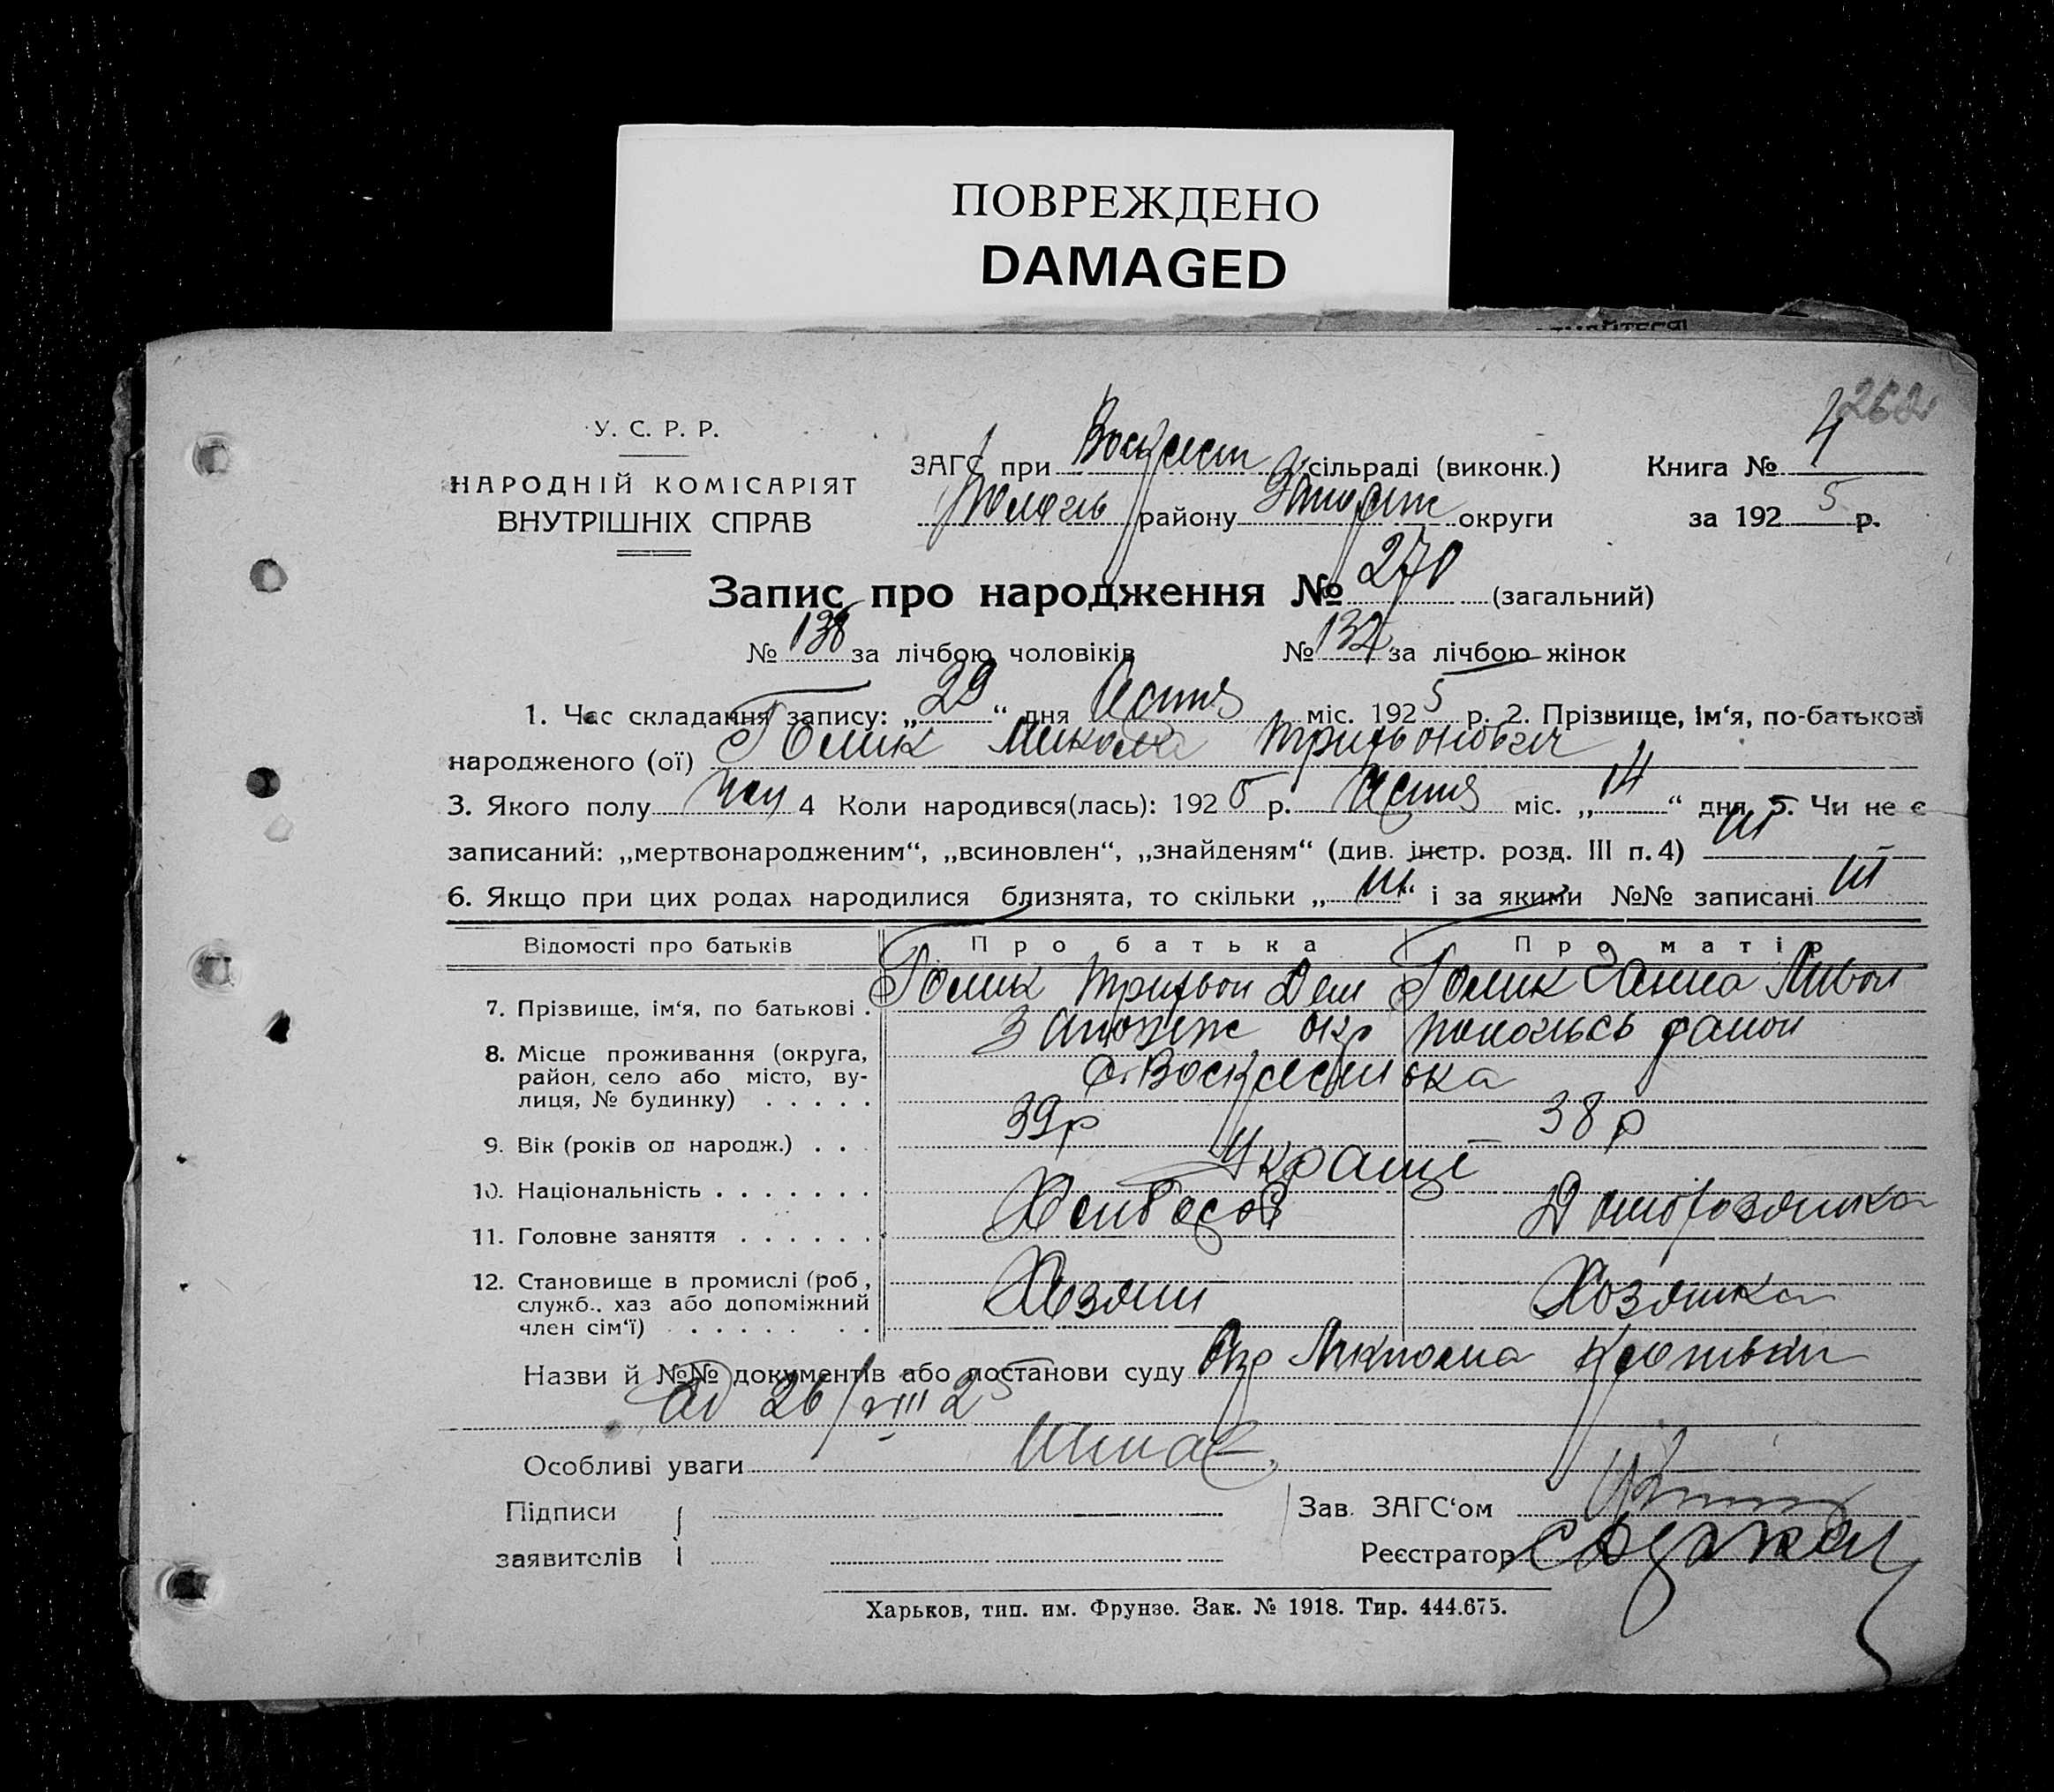 ПОВРЕЖДЕНО
DAMAGED
262
У. С. Р. Р.
НАРОДНІЙ КОМІСАРІЯТ
ВНУТРІШНІХ СПРАВ
ЗАГС при Воскресен сільраді (виконк.) Книга № 4
Пологів району Запоріж округи за 1925 р.
Запис про народження № 270 (загальний)
№ 138 за лічбою чоловіків № 132 за лічбою жінок
1. Час складання запису: „29“ дня міс. 1925 р. 2. Прізвище, ім‘я, по-батькові
народженого (ої) Голик Микола Трифонович
3. Якого полу чол 4 Коли народився(лась): 1925 р. міс. „14“ дня 5. Чи не є
записаний: „мертвонародженим“, „всиновлен“, „знайденям“ (див. інстр. розд. III п. 4)
6. Якщо при цих родах народилися близнята, то скільки „ “ і за якими №№ записані
Відомості про батьків Про батька Про матір
7. Прізвище, ім‘я, по батькові . Голик Трифон Дем Голик Ганна
8. Місце проживання (округа, Запоріж окр район
район, село або місто, ву- с. Воскресенька
лиця, № будинку) . . . . .
9. Вік (років од народж.) . . . 39 р 38 р
10. Національність . . . . . . . Укращі
11. Головне заняття . . . . . . Хліборов Домохозяика
12. Становище в промислі (роб, Хозяин Хозяика
служб., хаз або допоміжний
член сім‘ї) . . . . . . .
Назви й №№ документів або постанови суду
26/VIII 25
Особливі уваги Немає
Підписи Зав. ЗАГС‘ом
заявителів Реєстратор
Харьков, тип. им. Фрунзе. Зак. № 1918. Тир. 444.675.